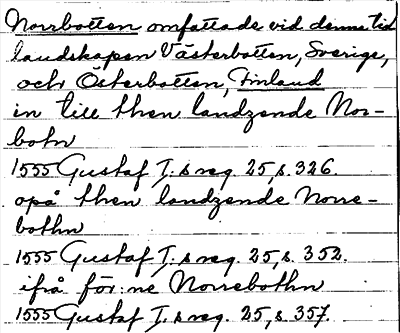 Norrbotten omfattade vid denna tid
landskapen Västerbotten, Sverige,
och Österbotten, Finland
in till then landzende Nor-
botn
1555 Gustaf I:s reg. 25, s. 326.
opå then landzende Norre-
bothn
1555 Gustaf I:s reg. 25, s. 352.
ifrå för:ne Norrebothn
1555 Gustaf I:s reg. 25, s. 357.